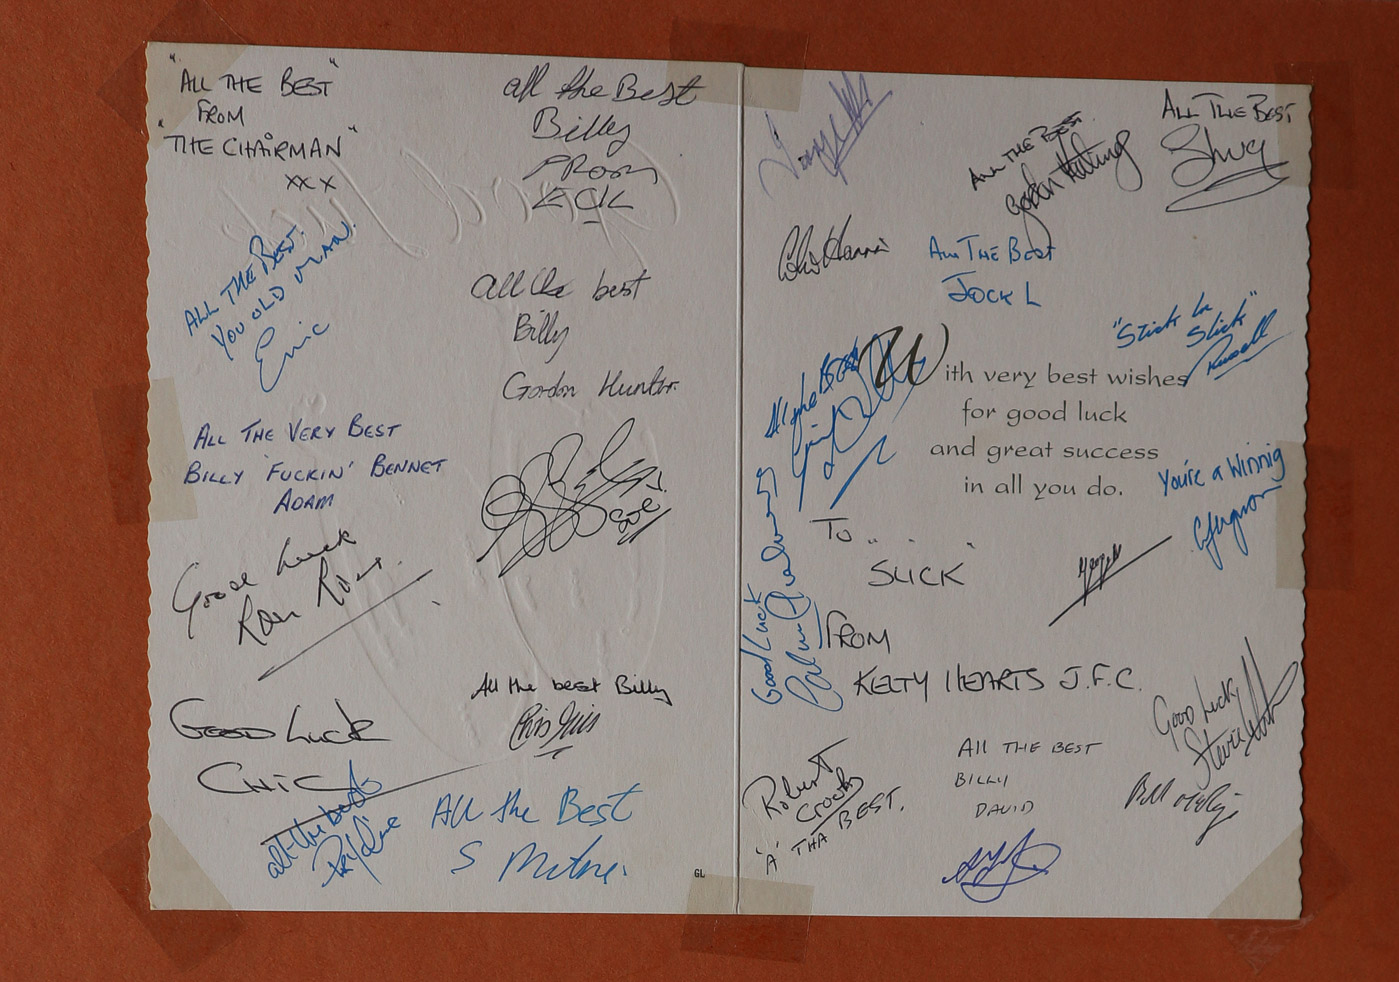 "ALL THE BEST"
FROM
"THE CHAIRMAN"
xxx
All the Best
Billy
FROM
ECK
ALL THE BEST.
YOU OLD MAN.
Eric
All the best
Billy
Gordon Hunter.
ALL THE VERY BEST
BILLY 'FUCKIN' BENNET
ADAM
Good Luck
Ross.
GOOD LUCK
CHIC
All the best Billy
Chris
all the best
All the Best
S Milne.
GL
ALL THE BEST.
Gordon
ALL THE BEST
Shug
Colin
ALL THE BEST
JOCK L
"Stick In
Slick"
Russell
All the Best
With very best wishes
for good luck
and great success
in all you do.
You're a Winnig
C Ferguson
To . . .
SLICK
Good Luck
Calum
FROM
KELTY HEARTS J.F.C.
Good Luck,
Stevie
Robert
'A' THA BEST.
All THE BEST
BILLY
DAVID
Bill